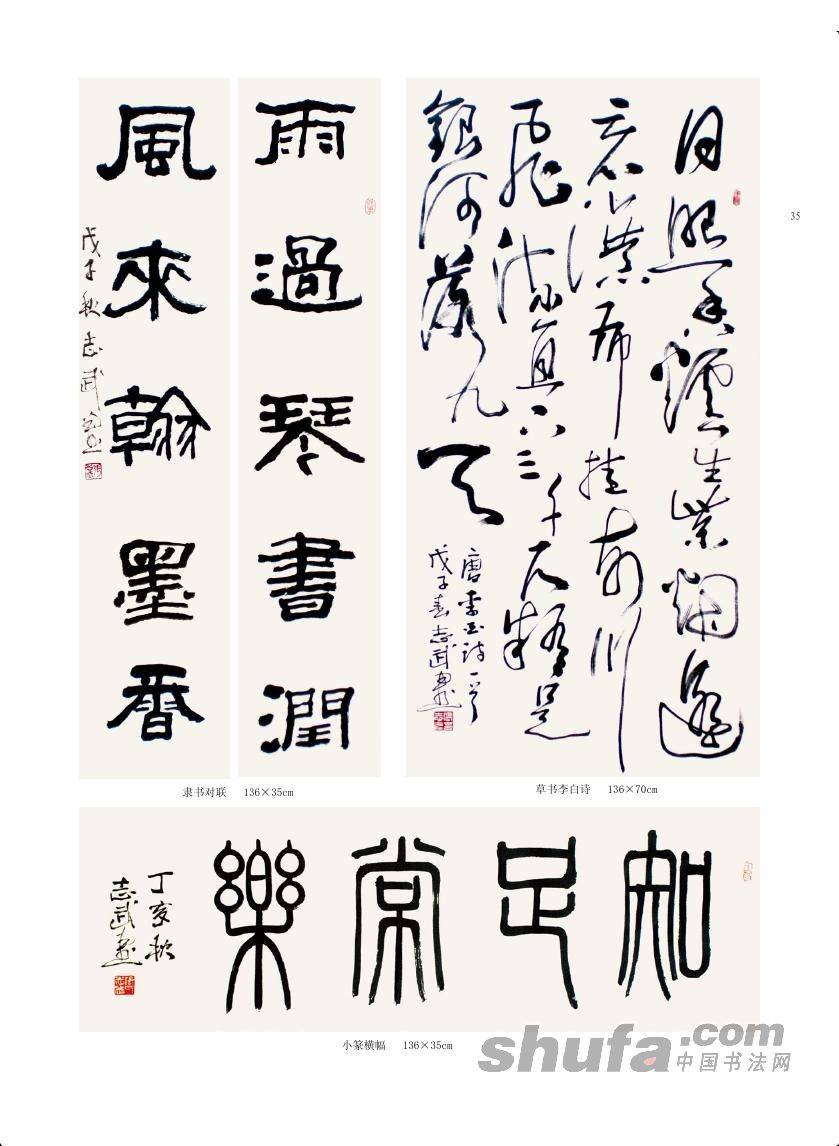 35
雨過琴書潤
風來翰墨香
戊子秋志武
隶书对联 136×35cm
日照香爐生紫烟遥
瀑布挂前川
飛流直下三千尺疑是
銀河落九天
唐李白詩一首
戊子春志武書
草书李白诗 136×70cm
知足常樂
丁亥秋
志武書
小篆横幅 136×35cm
shufa.com
中国书法网